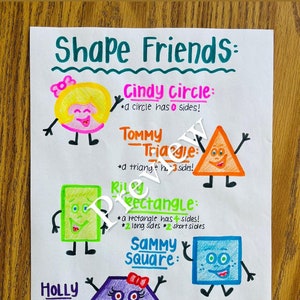 Shape Friends:
Cindy Circle:
•a circle has 0 sides!
Tommy
Triangle:
•a triangle has side!
Riley
Rectangle:
•a rectangle has 4 sides!
•2 long sides •2 short sides
Sammy
Square:
Holly
Preview